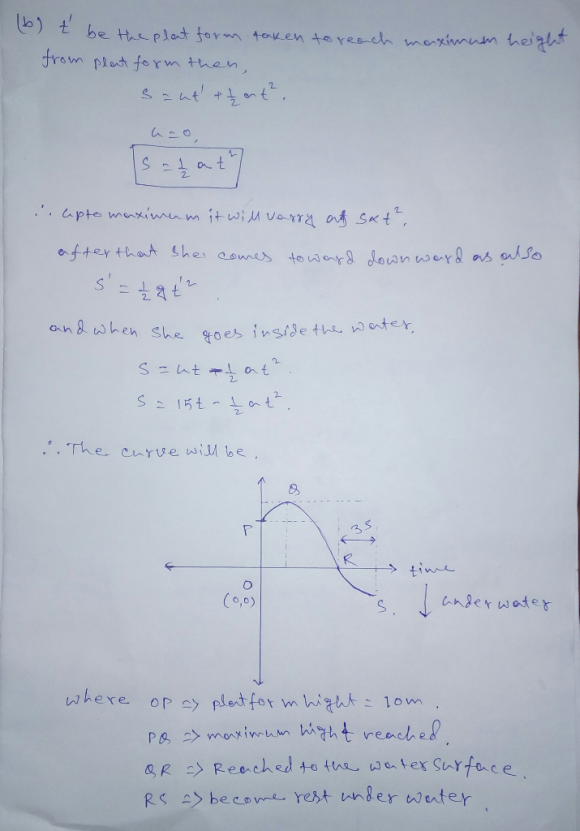 (b) t' be the plat form taken to reach maximum height
from plat form then,
S = ut' + ½ at².
u = 0,
S = ½ at²
∴ upto maximum it will varry as S∝t²,
after that she comes toward downward as also
S' = ½ g t'²
and when she goes inside the water,
S = ut - ½ at².
S = 15t - ½ at².
∴ The curve will be.
Q
P
3S
R
time
O
(0,0)
S.
↓ under water
where OP => plat for m hight = 10m.
PQ => maximum hight reached.
QR => Reached to the water surface.
RS => become rest under water.